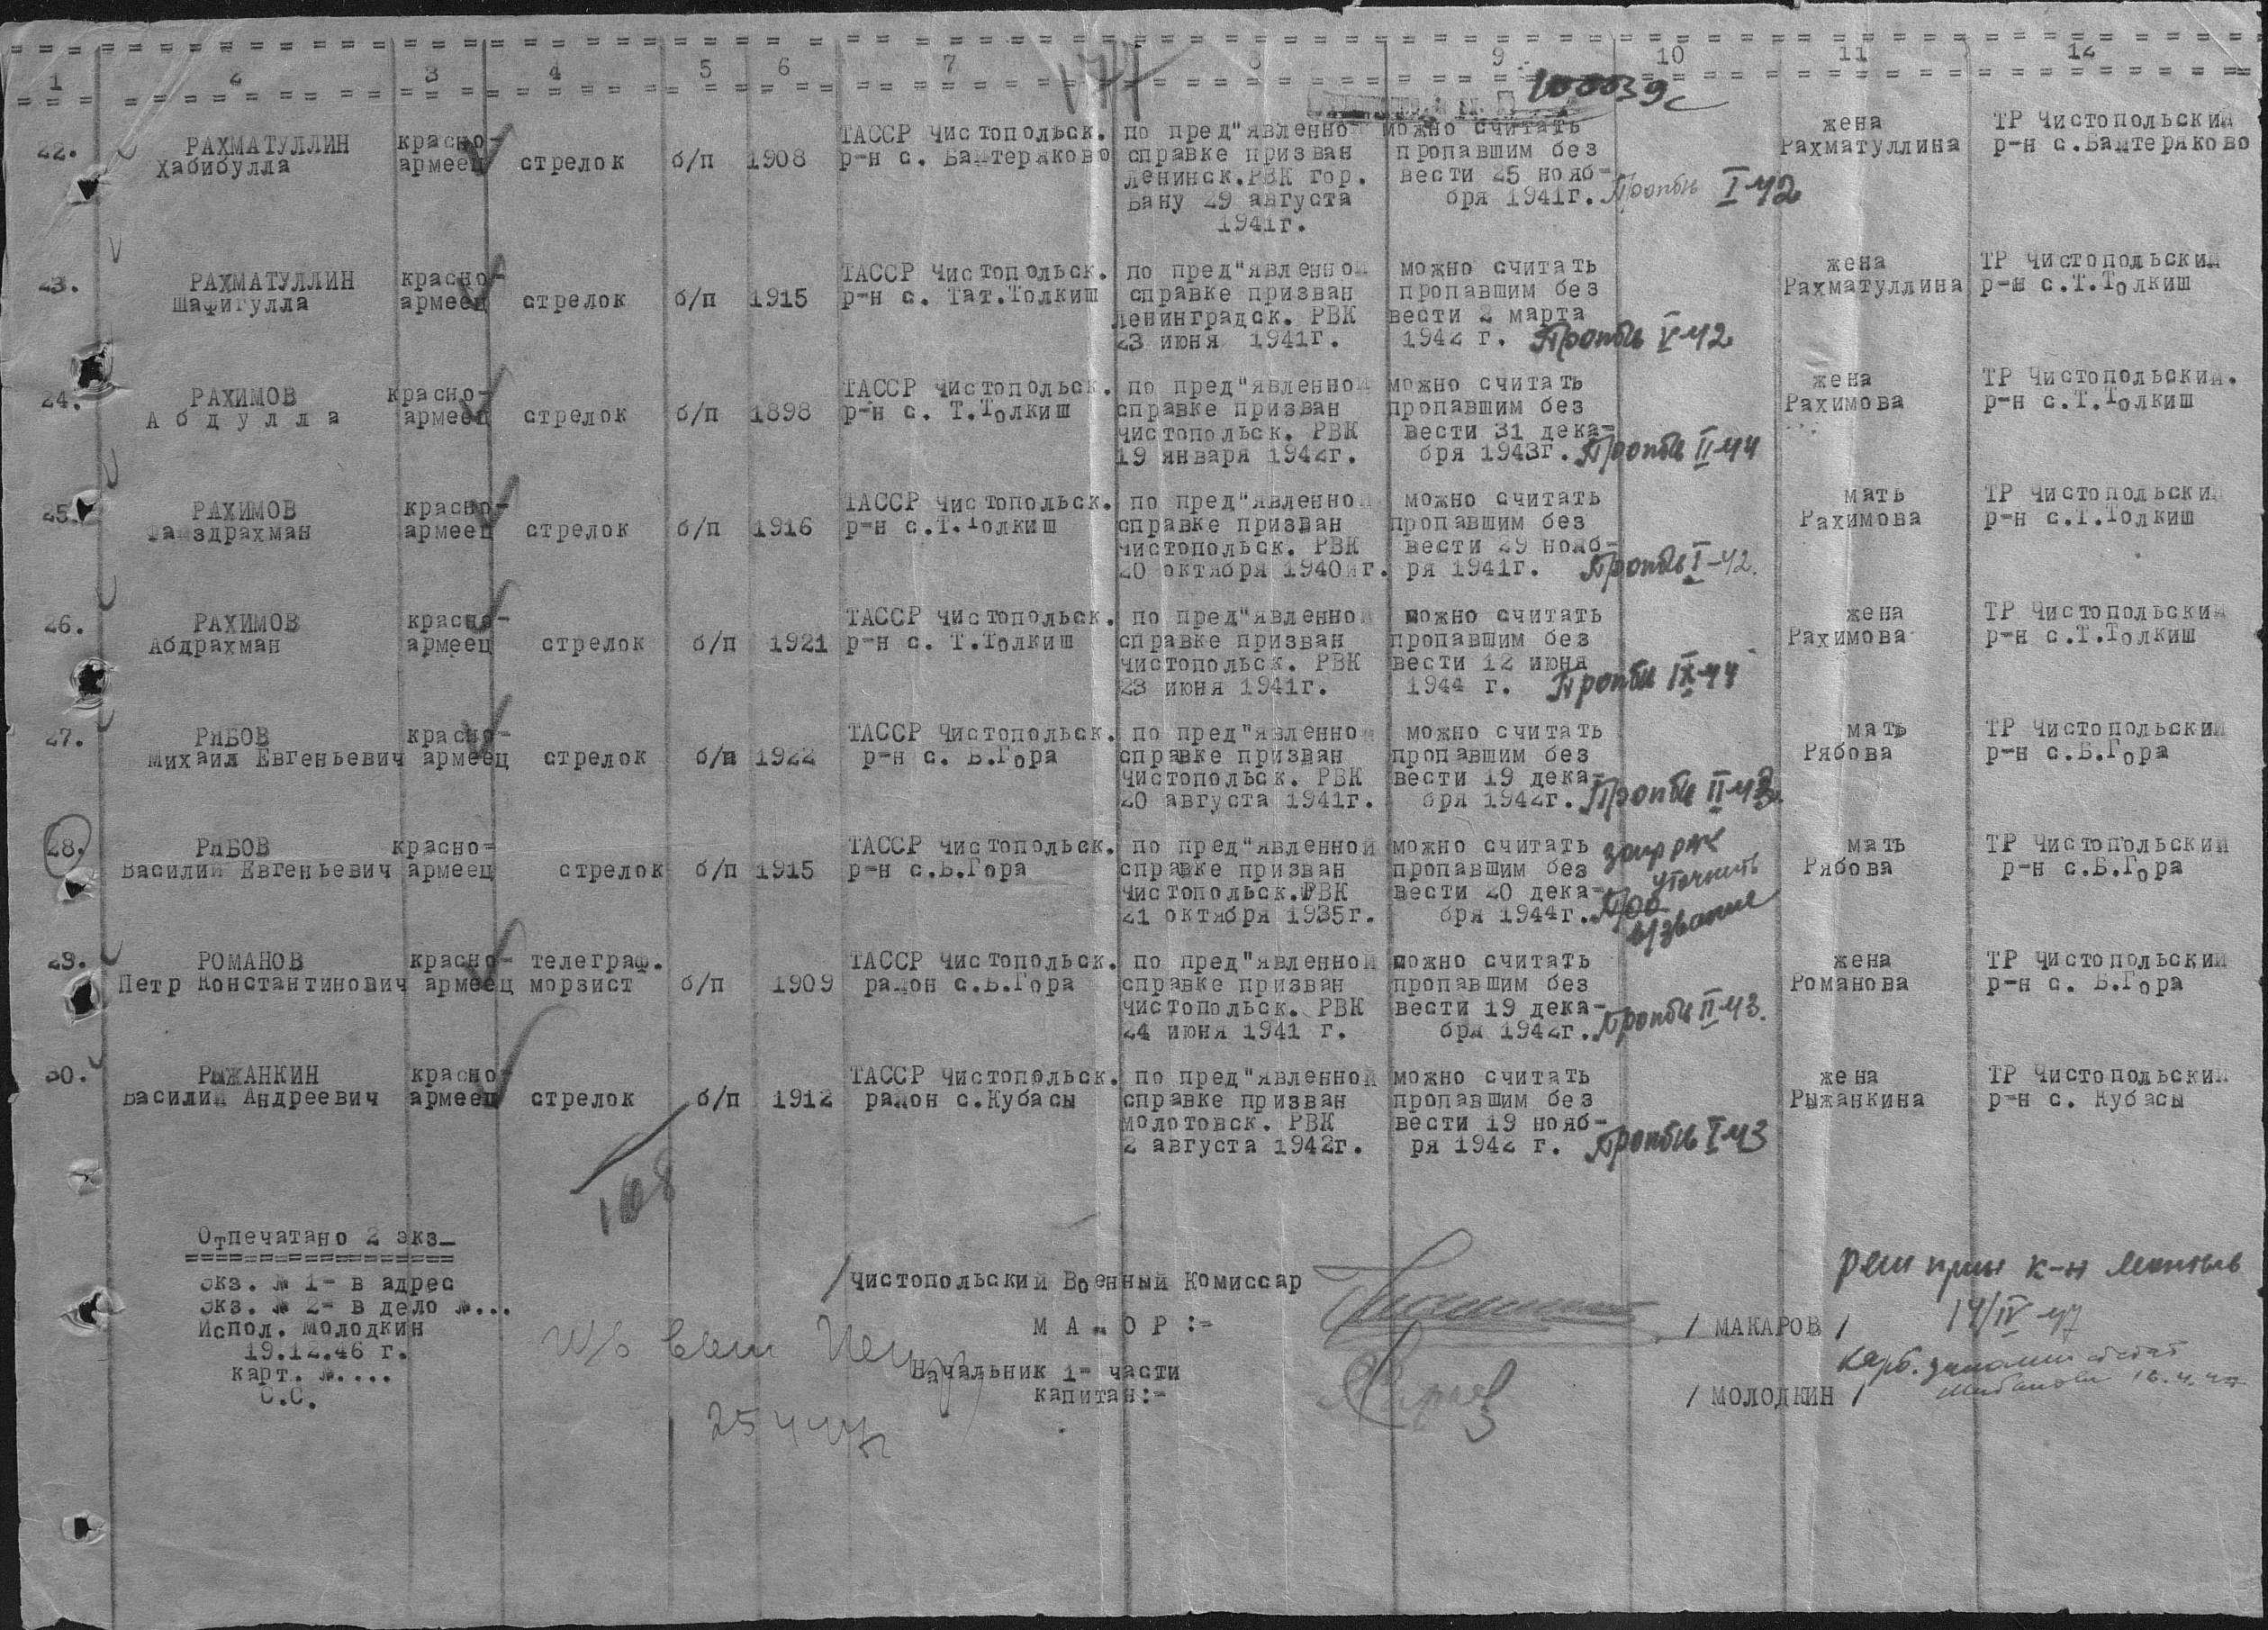 1 2 3 4 5 6 7 8 9 10 11 12
174
10003 9с
22. РАХМАТУЛЛИН Хабибулла красно-армеец стрелок б/п 1908
ТАССР Чистопольск.
р-н с. Баштеряково
по пред"явленной
справке призван
Ленинск.РВК гор.
Баку 29 августа
1941г.
можно считать
пропавшим без
вести 25 нояб-
бря 1941г. Проп б/в I-42
жена
Рахматуллина
ТР Чистопольский
р-н с.Баштеряково
23. РАХМАТУЛЛИН Шафигулла красно-армеец стрелок б/п 1915
ТАССР Чистопольск.
р-н с. Тат.Толкиш
по пред"явленной
справке призван
Ленинградск. РВК
23 июня 1941г.
можно считать
пропавшим без
вести 2 марта
1942 г. Проп б/в V-42
жена
Рахматуллина
ТР Чистопольский
р-н с.Т.Толкиш
24. РАХИМОВ Абдулла красно-армеец стрелок б/п 1898
ТАССР Чистопольск.
р-н с. Т.Толкиш
по пред"явленной
справке призван
Чистопольск. РВК
19 января 1942г.
можно считать
пропавшим без
вести 31 дека-
бря 1943г. Проп б/в II-44
жена
Рахимова
ТР Чистопольский.
р-н с.Т.Толкиш
25. РАХИМОВ Файздрахман красно-армеец стрелок б/п 1916
ТАССР Чистопольск.
р-н с.Т.Толкиш
по пред"явленной
справке призван
Чистопольск. РВК
20 октября 1940г.
можно считать
пропавшим без
вести 29 нояб-
ря 1941г. Проп б/в I-42.
мать
Рахимова
ТР Чистопольский
р-н с.Т.Толкиш
26. РАХИМОВ Абдрахман красно-армеец стрелок б/п 1921
ТАССР Чистопольск.
р-н с. Т.Толкиш
по пред"явленной
справке призван
Чистопольск. РВК
23 июня 1941г.
можно считать
пропавшим без
вести 12 июня
1944 г. Проп б/в IX-44
жена
Рахимова
ТР Чистопольский
р-н с.Т.Толкиш
27. РЯБОВ Михаил Евгеньевич красно-армеец стрелок б/п 1922
ТАССР Чистопольск.
р-н с. Б.Гора
по пред"явленной
справке призван
Чистопольск. РВК
20 августа 1941г.
можно считать
пропавшим без
вести 19 дека-
бря 1942г. Проп б/в II-43.
мать
Рябова
ТР Чистопольский
р-н с.Б.Гора
28. РЯБОВ Василий Евгеньевич красно-армеец стрелок б/п 1915
ТАССР Чистопольск.
р-н с.Б.Гора
по пред"явленной
справке призван
Чистопольск.РВК
21 октября 1935г.
можно считать
пропавшим без
вести 20 дека-
бря 1944г.
уточнить
в/звание
мать
Рябова
ТР Чистопольский
р-н с.Б.Гора
29. РОМАНОВ Петр Константинович красно-армеец телеграф. морзист б/п 1909
ТАССР Чистопольск.
район с.Б.Гора
по пред"явленной
справке призван
Чистопольск. РВК
24 июня 1941 г.
можно считать
пропавшим без
вести 19 дека-
бря 1942г. Проп б/в II-43.
жена
Романова
ТР Чистопольский
р-н с. Б.Гора
30. РЫЖАНКИН Василий Андреевич красно-армеец стрелок б/п 1912
ТАССР Чистопольск.
район с.Кубасы
по пред"явленной
справке призван
Молотовск. РВК
2 августа 1942г.
можно считать
пропавшим без
вести 19 нояб-
ря 1942 г. Проп б/в I-43
жена
Рыжанкина
ТР Чистопольский
р-н с. Кубасы
Отпечатано 2 экз_
экз. № 1- в адрес
экз. № 2- в дело №...
Испол. Молодкин
19.12.46 г.
карт. №....
С.С.
/Чистопольский Военный Комиссар
МАЙОР:- / МАКАРОВ /
Начальник 1- части
капитан:- / МОЛОДКИН /
14/IV-47